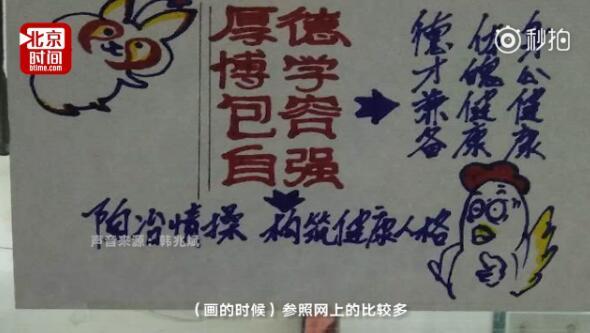 北京
时间
btime.com
秒拍
厚德
博学
包容
自强
德才兼备
体魄健康
身心健康
陶冶情操 构筑健康人格
声音来源:韩兆斌
(画的时候)参照网上的比较多